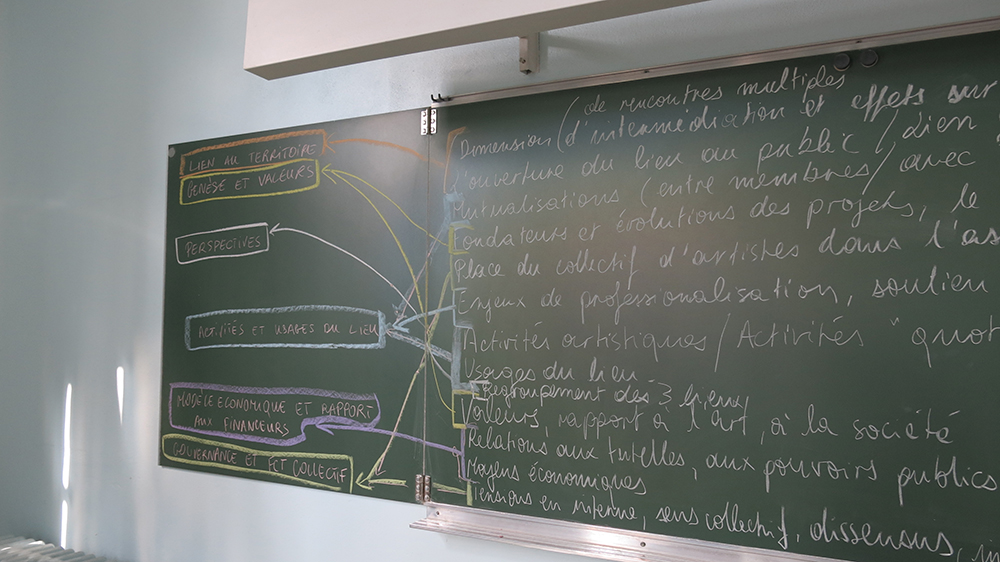 LIEN AU TERRITOIRE
GENÈSE ET VALEURS
PERSPECTIVES
ACTIVITÉS ET USAGES DU LIEU
MODÈLE ECONOMIQUE ET RAPPORT
AUX FINANCEURS
GOUVERNANCE ET FCT COLLECTIF
(de rencontres multiples
Dimension (d'intermédiation et effets sur
L'ouverture du lieu au public / Lien
Mutualisations (entre membres / avec
Fondateurs et évolutions des projets, le
Place du collectif d'artistes dans l'as
Enjeux de professionalisation, soutien
Activités artistiques / Activités "quot
Usages du lieu
Regroupement des 3 lieux
Valeurs, rapport à l'art, à la société
Relations aux tutelles, aux pouvoirs publics
Moyens économiques
Tensions en interne, sens collectif, dissensus,